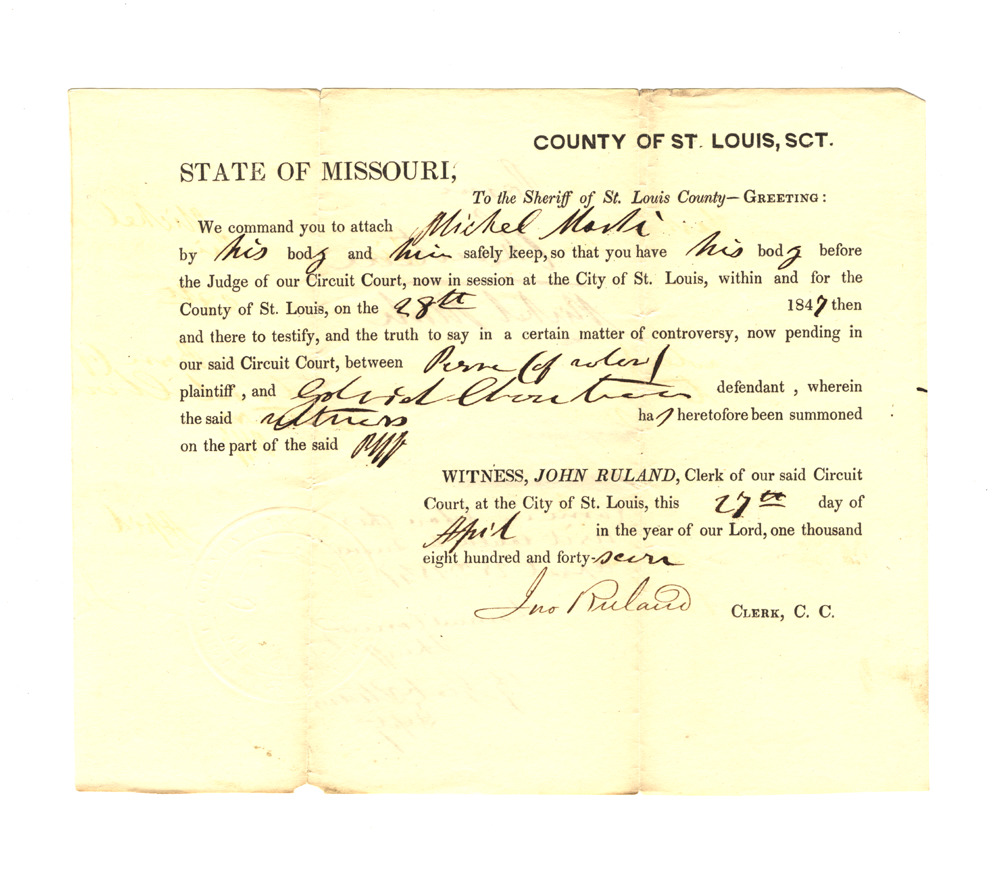 COUNTY OF ST. LOUIS, SCT.
STATE OF MISSOURI,
To the Sheriff of St. Louis County—GREETING:
We command you to attach Michel Marli
by his body and him safely keep, so that you have his body before
the Judge of our Circuit Court, now in session at the City of St. Louis, within and for the
County of St. Louis, on the 28th 1847 then
and there to testify, and the truth to say in a certain matter of controversy, now pending in
our said Circuit Court, between Pierre (of color)
plaintiff, and Gabriel Chouteau defendant, wherein
the said witness has heretofore been summoned
on the part of the said Plff
WITNESS, JOHN RULAND, Clerk of our said Circuit
Court, at the City of St. Louis, this 27th day of
April in the year of our Lord, one thousand
eight hundred and forty-seven
Jno Ruland CLERK, C. C.